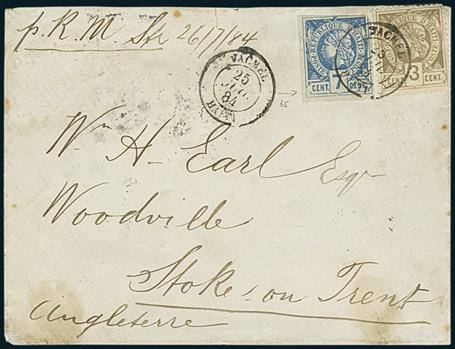 p. R. M Str 26/7/84
JACMEL
25
84
HAITI
REPUBLIQUE D'HAITI
CENT. 7 CENT.
JACMEL
3 CENT.
W. H. Earl Esqr
Woodville
Stoke on Trent
Angleterre